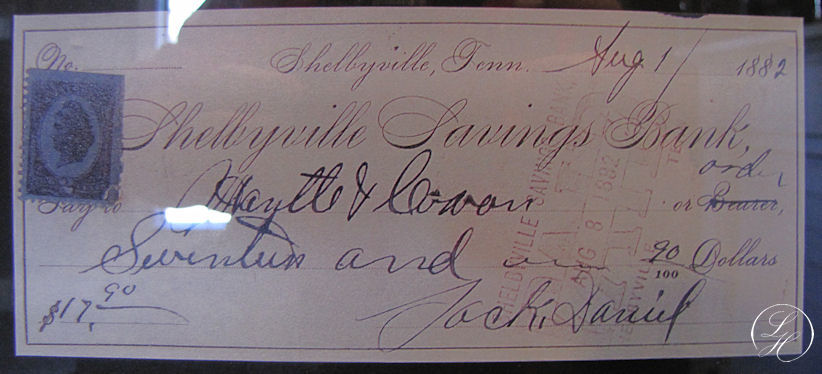 No.
Shelbyville, Tenn. Aug 1 1882
Shelbyville Savings Bank,
order
Pay to & Cowan or Bearer,
Seventeen and 90/100 Dollars
$17.90
Jack Daniel
SHELBYVILLE SAVINGS BANK
AUG 8 1882
LH